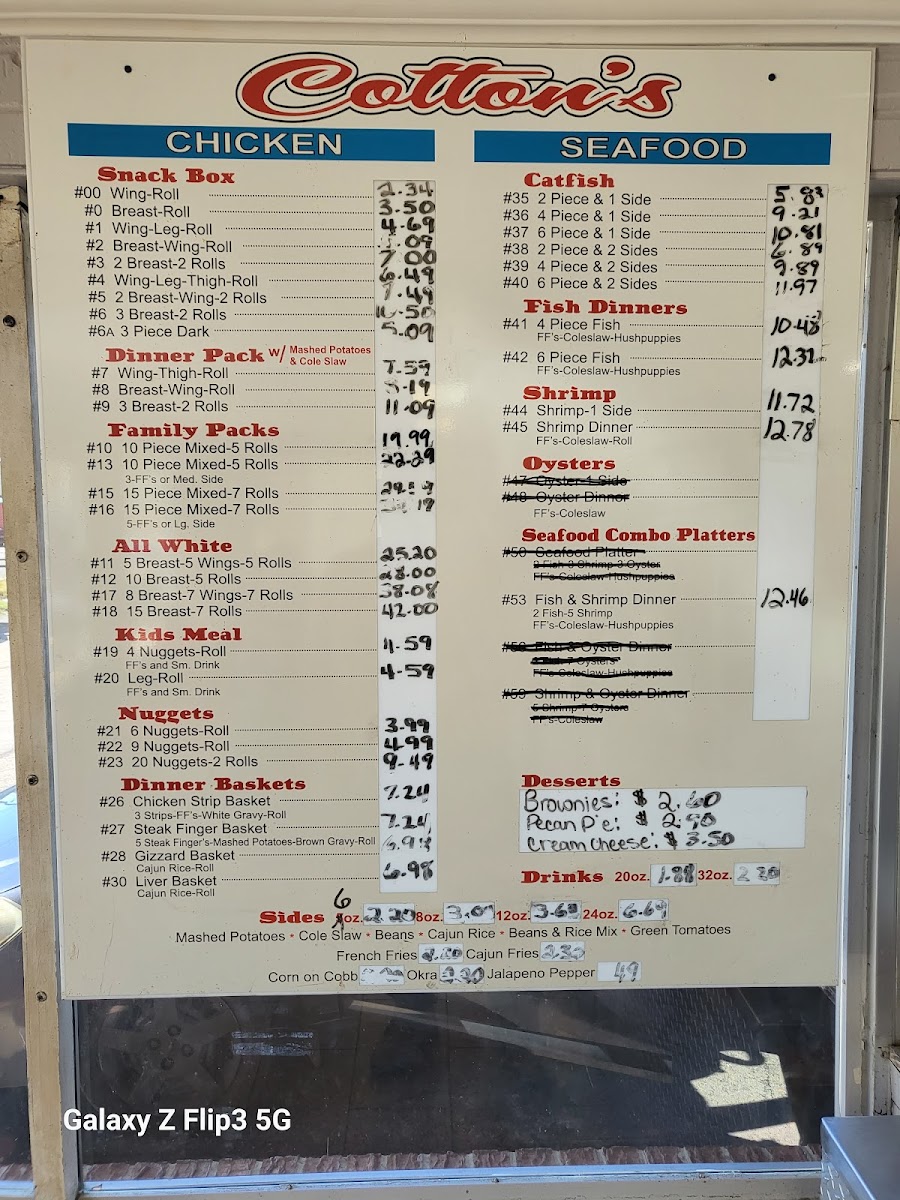 Cotton's
CHICKEN
Snack Box
#00 Wing-Roll 2.34
#0 Breast-Roll 3.50
#1 Wing-Leg-Roll 4.69
#2 Breast-Wing-Roll
#3 2 Breast-2 Rolls 7.00
#4 Wing-Leg-Thigh-Roll 6.49
#5 2 Breast-Wing-2 Rolls
#6 3 Breast-2 Rolls
#6A 3 Piece Dark 5.09
Dinner Pack w/ Mashed Potatoes
& Cole Slaw
#7 Wing-Thigh-Roll 7.59
#8 Breast-Wing-Roll
#9 3 Breast-2 Rolls 11.09
Family Packs
#10 10 Piece Mixed-5 Rolls 19.99
#13 10 Piece Mixed-5 Rolls 22.29
3-FF's or Med. Side
#15 15 Piece Mixed-7 Rolls
#16 15 Piece Mixed-7 Rolls
5-FF's or Lg. Side
All White
#11 5 Breast-5 Wings-5 Rolls 25.20
#12 10 Breast-5 Rolls 28.00
#17 8 Breast-7 Wings-7 Rolls 38.08
#18 15 Breast-7 Rolls 42.00
Kids Meal
#19 4 Nuggets-Roll 4.59
FF's and Sm. Drink
#20 Leg-Roll 4.59
FF's and Sm. Drink
Nuggets
#21 6 Nuggets-Roll 3.99
#22 9 Nuggets-Roll 4.99
#23 20 Nuggets-2 Rolls 9.49
Dinner Baskets
#26 Chicken Strip Basket 7.24
3 Strips-FF's-White Gravy-Roll
#27 Steak Finger Basket 7.24
5 Steak Finger's-Mashed Potatoes-Brown Gravy-Roll
#28 Gizzard Basket 6.98
Cajun Rice-Roll
#30 Liver Basket
Cajun Rice-Roll
SEAFOOD
Catfish
#35 2 Piece & 1 Side 5.83
#36 4 Piece & 1 Side 9.21
#37 6 Piece & 1 Side 10.81
#38 2 Piece & 2 Sides 6.89
#39 4 Piece & 2 Sides 9.89
#40 6 Piece & 2 Sides 11.97
Fish Dinners
#41 4 Piece Fish 10.48
FF's-Coleslaw-Hushpuppies
#42 6 Piece Fish 12.31
FF's-Coleslaw-Hushpuppies
Shrimp
#44 Shrimp-1 Side 11.72
#45 Shrimp Dinner 12.78
FF's-Coleslaw-Roll
Oysters
#47 Oyster-1 Side
#48 Oyster Dinner
FF's-Coleslaw
Seafood Combo Platters
#50 Seafood Platter
2 Fish-3 Shrimp-3 Oyster
FF's-Coleslaw-Hushpuppies
#53 Fish & Shrimp Dinner 12.46
2 Fish-5 Shrimp
FF's-Coleslaw-Hushpuppies
Fish & Oyster Dinner
FF's-Coleslaw-Hushpuppies
#59 Shrimp & Oyster Dinner
5 Shrimp-7 Oysters
FF's-Coleslaw
Desserts
Brownies: $ 2.60
Pecan Pie: $ 2.90
Cream Cheese: $ 3.50
Drinks 20oz. 1.88 32oz.
Sides 6 oz. 2.20 8oz. 3.09 12oz. 3.69 24oz. 6.69
Mashed Potatoes * Cole Slaw * Beans * Cajun Rice * Beans & Rice Mix * Green Tomatoes
French Fries Cajun Fries
Corn on Cobb Okra Jalapeno Pepper 49
Galaxy Z Flip3 5G